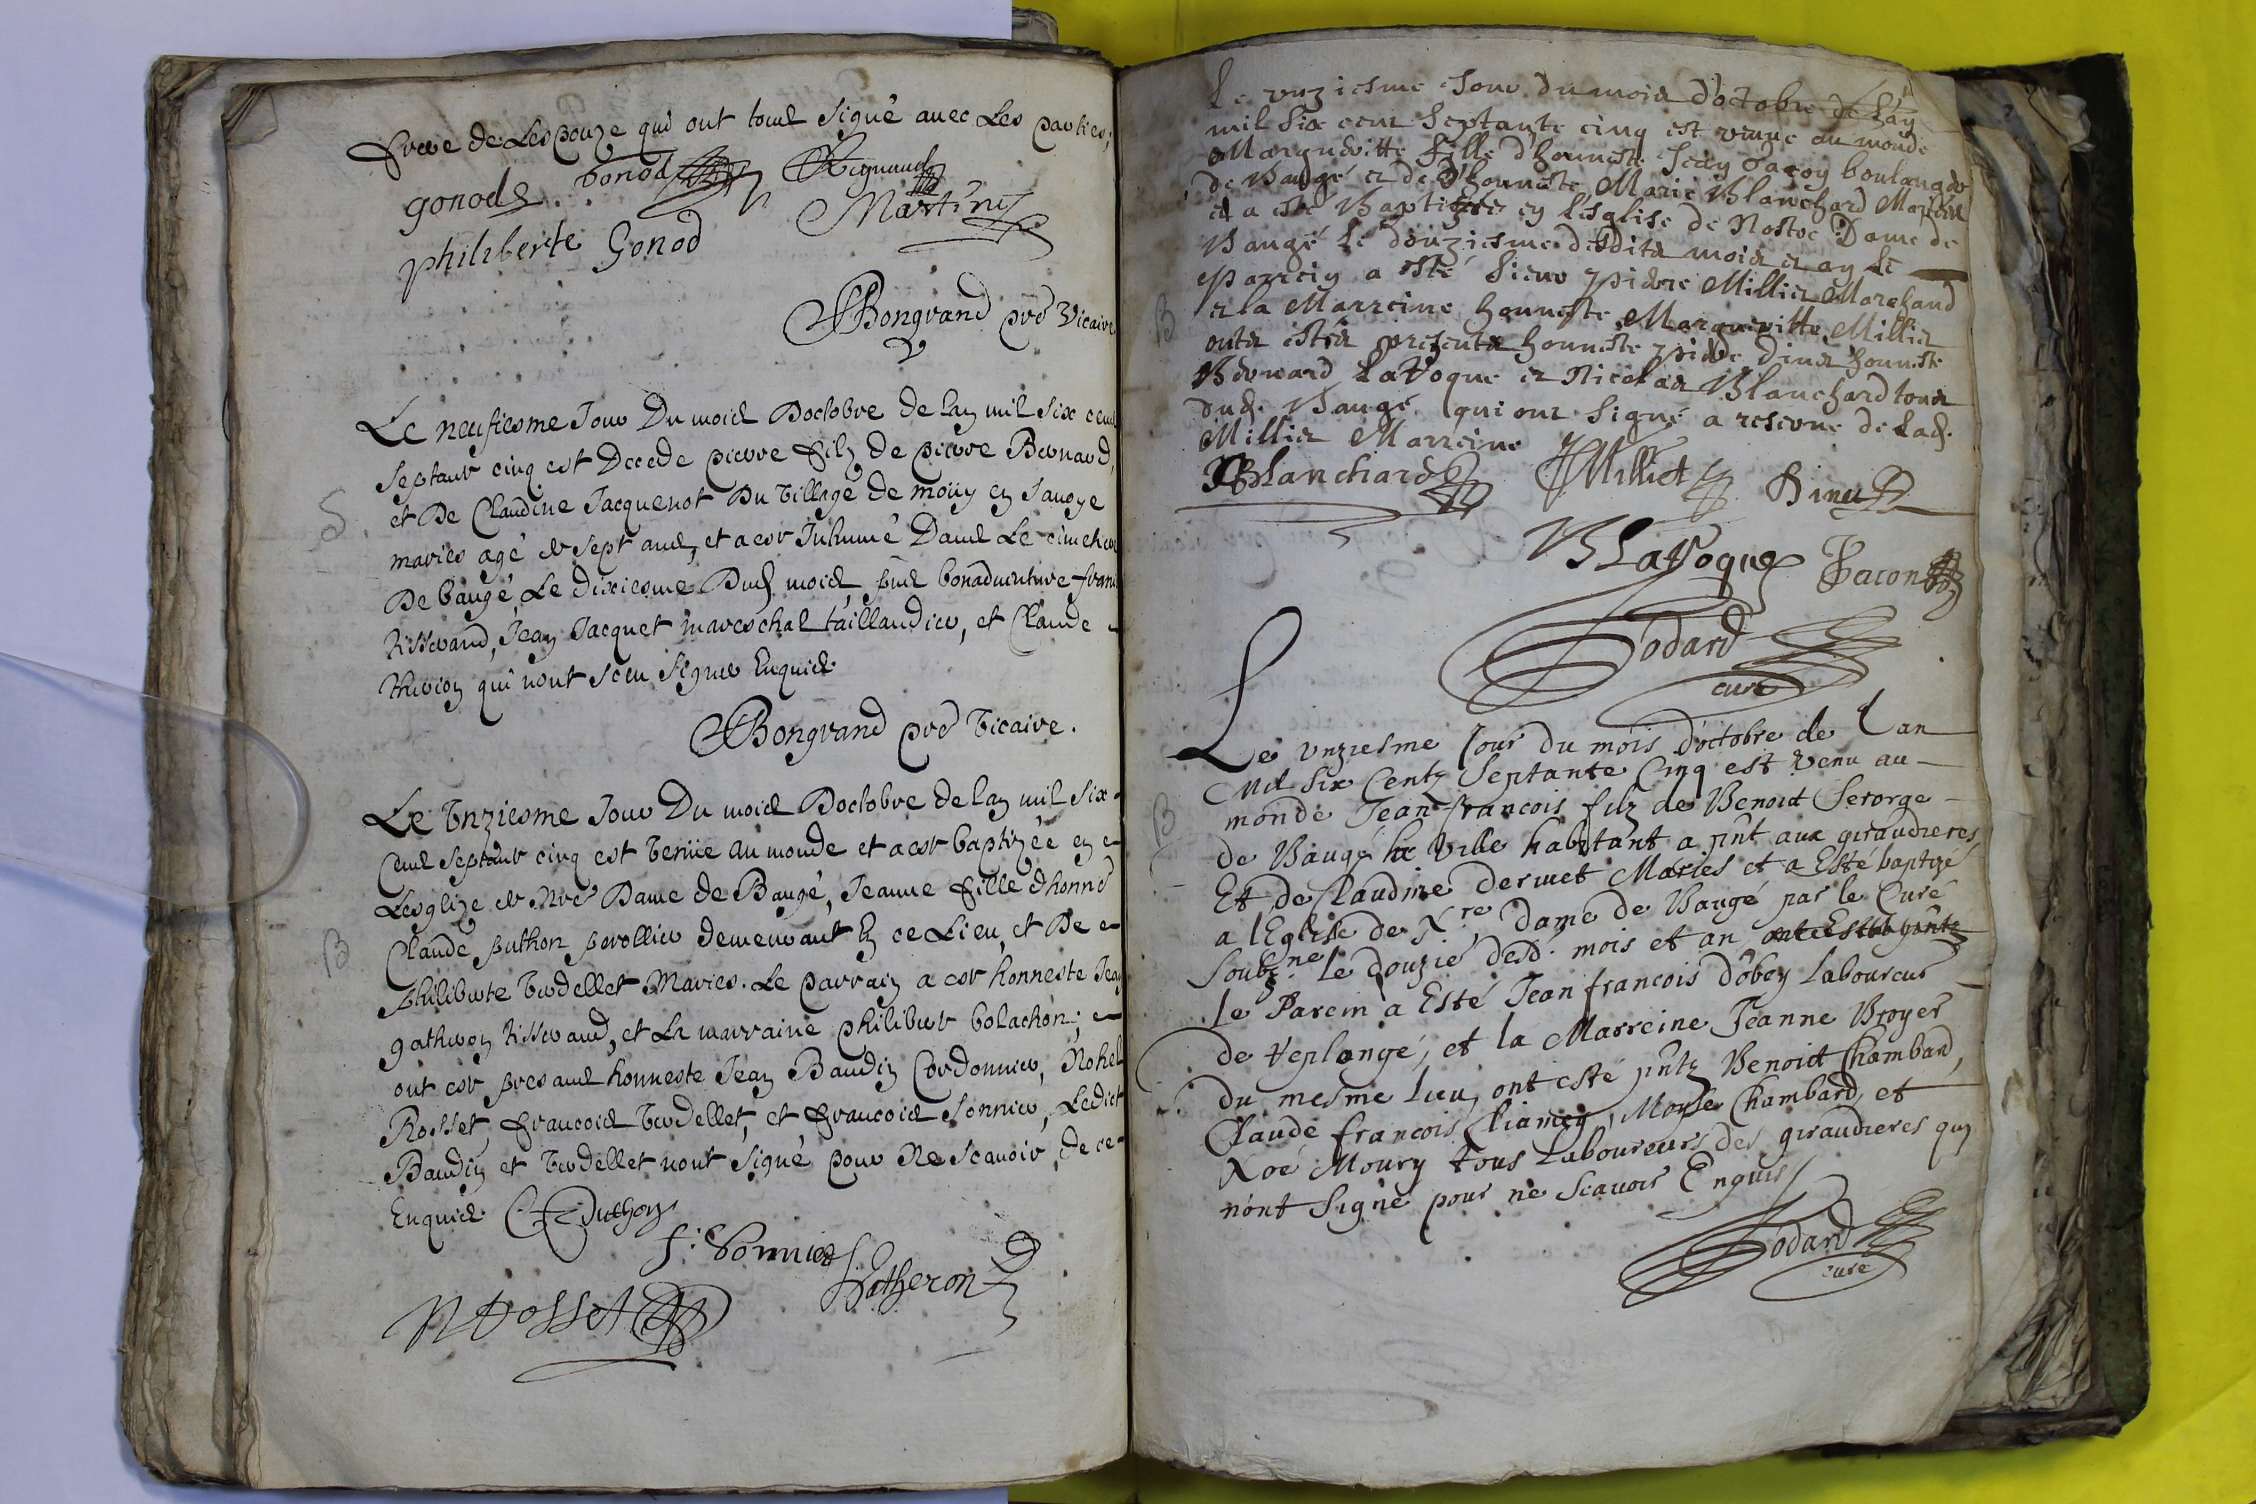 frere de Lespouze qui ont tous signé avec Les parties,
gonod bonod Regnaud
philiberte Gonod Martin
Bongrand pre Vicaire
S
Le neufiesme Jour Du mois Doctobre de lan mil six cens
septante cinq est Decede pierre filz de pierre Bernard,
et De Claudine Jacquenot Du village de en Savoye
maries agé de sept ans, et a este Inhumé Dans Le cimetiere
De baugé, Le dixiesme Dud mois, pns bonaduenture fran
Risserand, Jean Jacquet mareschal taillandier, et Claude
qui nont sceu signer Enquis
Bongrand pre vicaire.
B
Le Unziesme Jour Du mois Doctobre de lan mil six
Cens septante cinq est venüe au monde et a este baptizée en
Lesglize de Nre Dame de Baugé, Jeanne fille dhonne
Claude puthon demeurant En ce Lieu, et De
philiberte verdellet Maries. Le parrain a este honneste Jean
gatheron Risserand, et La marraine philiberte bolachon;
ont este presans honneste Jean Baudin Cordonnier, Nohel
Rosset, francois verdellet, et francois sonnier, Ledict
Baudin et verdellet nont signé pour Ne scavoir, de ce
Enquis C puthon
f. sonnier
N Rosset Gatheron
Le unziesme Jour du mois d'octobre de L'an
mil six cent septante cinq est venue au monde
Margueritte fille d'honneste Jean facon boulanger
de Baugé et de d'honneste Marie Blanchard Mariés
et a esté Baptizée en l'esglise de Nostre Dame de
Baugé le douziesme desdits mois et an le
B
Parrein a esté sieur pierre Milliet Marchand
et la Marreine honneste Margueritte Milliet
onts estés presents honneste pierre dinet honneste
Bernard LaVoque et Nicolas Blanchard tous
dud. Baugé qui ont signé a reserve de Lad.
Milliet Marreine
NBlanchard PMilliet Dinet
B LaVoque facon
Godard
curé
Le unziesme Jour du mois d'octobre de l'an
Mil six Centz Septante Cinq est venu au
B
monde Jean-francois filz de Benoit Serorge
de Baugé la Ville habitant a pnt aux giraudieres
Et de Claudine dermet Mariés et a Esté baptizé
a l'Eglise de N.re Dame de Baugé par le Curé
soubz.né le douzie desd. mois et an ont Esté pnts
Le Parein a Esté Jean francois dobey Laboureur
de Veplangé, et la Marreine Jeanne Broyer
du mesme Lieu, ont esté pntz Benoict Chambard,
Claude francois, Moyse Chambard, et
Noé Moury tous Laboureurs des giraudieres qui
n'ont signé pour ne scavoir Enquis
Godard
curé